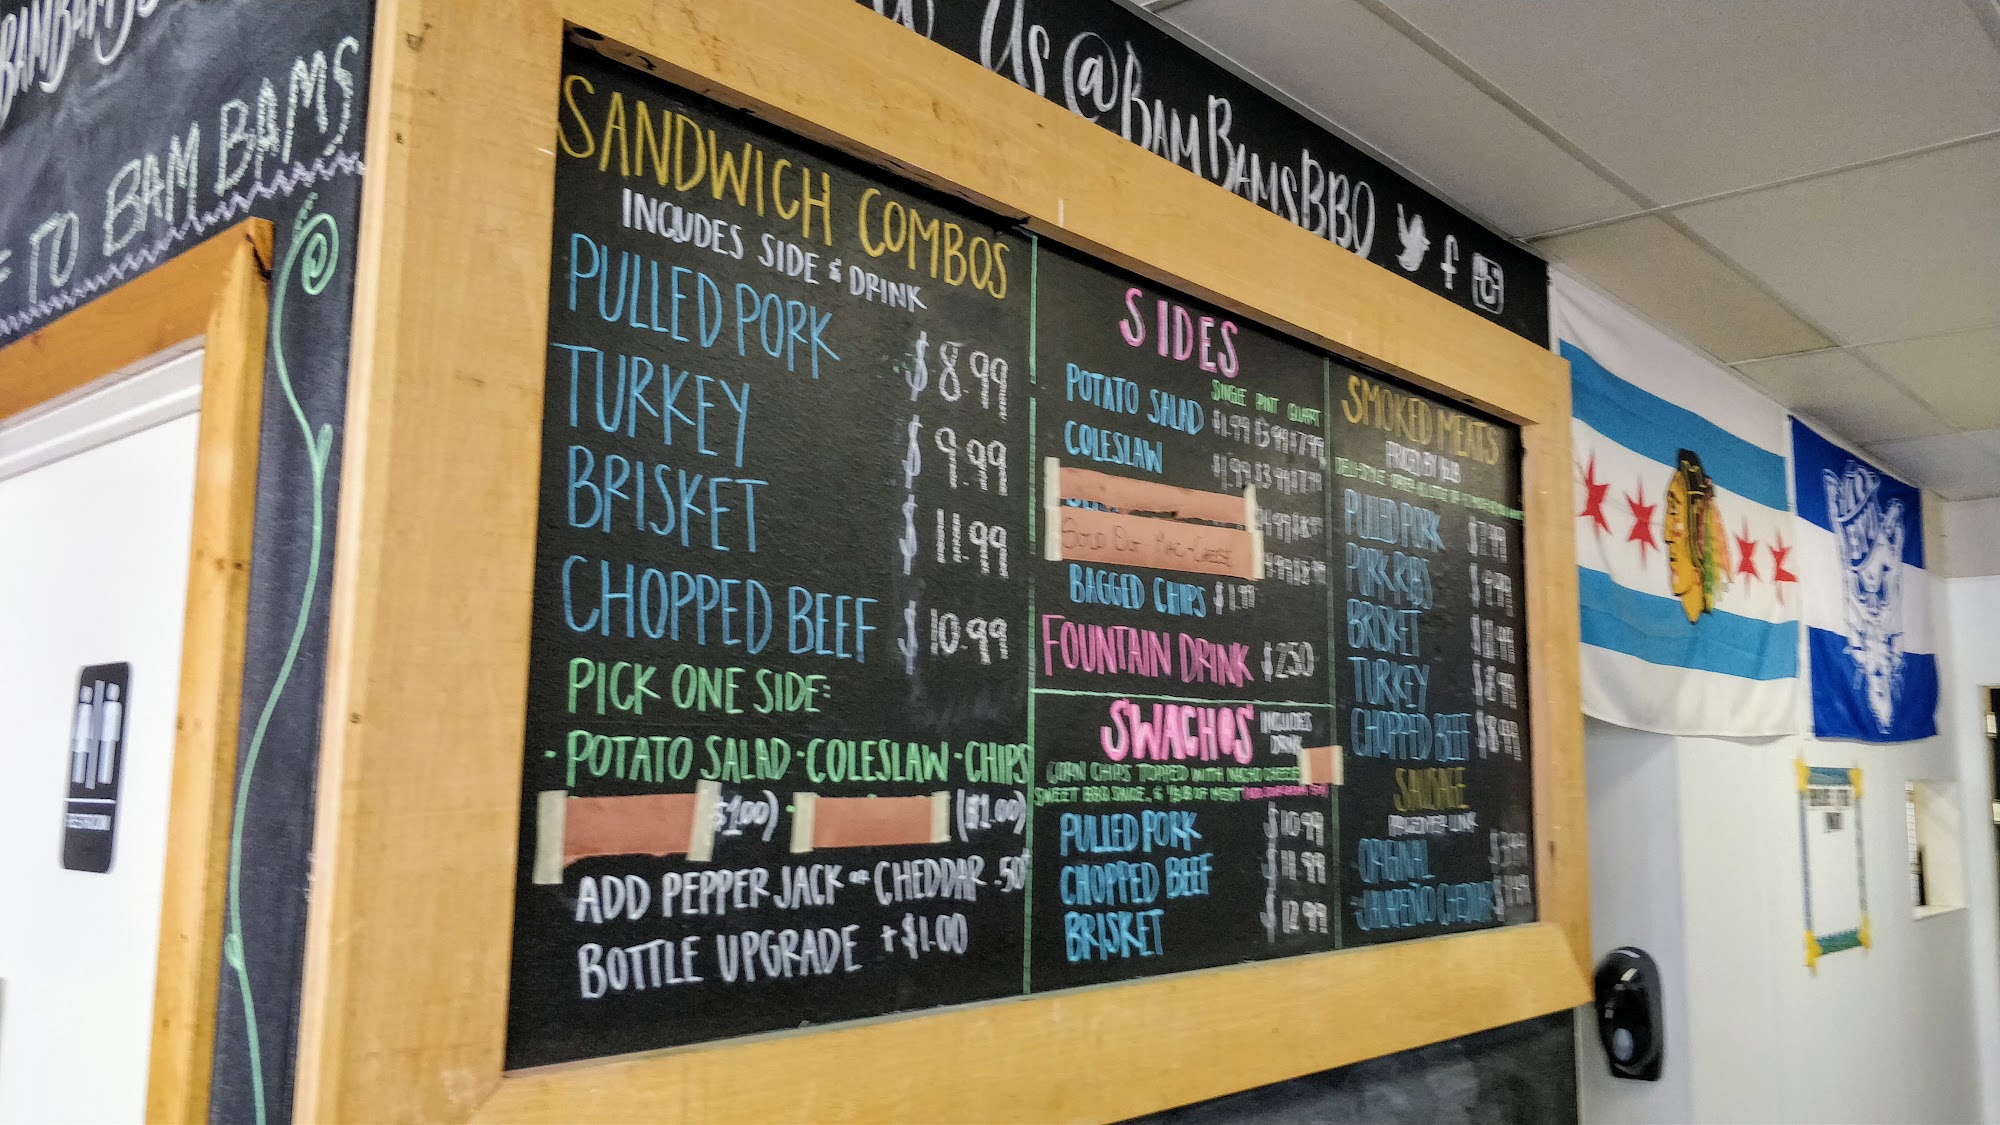 BAMBAMS
TO BAM BAMS
Us @BAMBAMSBBQ
SANDWICH COMBOS
INCLUDES SIDE & DRINK
PULLED PORK $8.99
TURKEY $9.99
BRISKET $11.99
CHOPPED BEEF $10.99
PICK ONE SIDE:
- POTATO SALAD - COLESLAW - CHIPS
$1.00) - ($1.00)
ADD PEPPER JACK OR CHEDDAR .50¢
BOTTLE UPGRADE +$1.00
SIDES
SINGLE PINT QUART
POTATO SALAD $1.99 $3.99 $7.99
COLESLAW $1.99 $3.99 $7.99
SOLD OUT MAC-CHEESE
BAGGED CHIPS $1.99
FOUNTAIN DRINK $2.50
SWACHOS INCLUDES DRINK
CORN CHIPS TOPPED WITH NACHO CHEESE
SWEET BBQ SAUCE, & 1/4LB OF MEAT
PULLED PORK $10.99
CHOPPED BEEF $11.99
BRISKET $12.99
SMOKED MEATS
PRICED BY 1/2LB
PULLED PORK $7.99
PORK RIBS
BRISKET $11.99
TURKEY $8.99
CHOPPED BEEF $8.99
SAUSAGE
PRICED PER LINK
ORIGINAL $3.99
JALAPEÑO CHEDDAR
RESTROOM